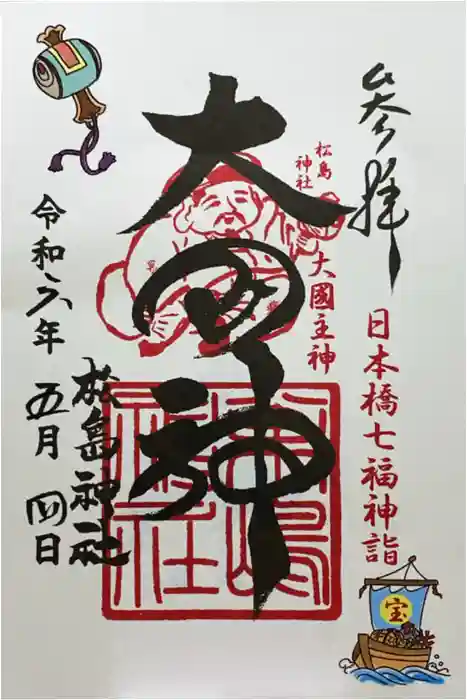 参拝
日本橋七福神詣
松島
神社
大國主神
大国神
松島神社
令和六年
五月四日
宝